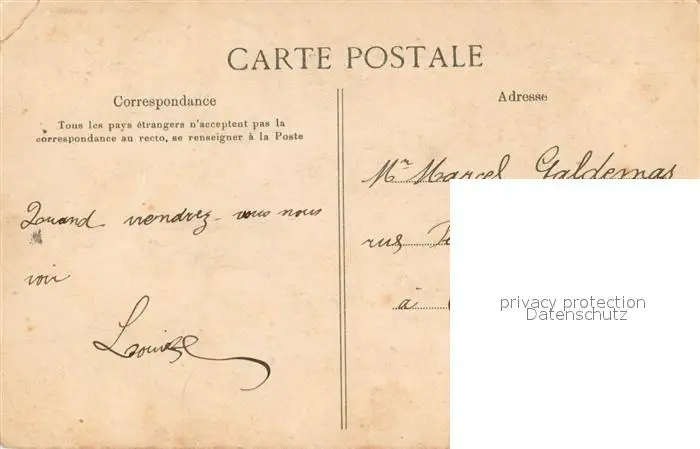 CARTE POSTALE
Correspondance
Tous les pays étrangers n'acceptent pas la
correspondance au recto, se renseigner à la Poste
Adresse
Mr Marcel Galdemas
rue
à
Quand viendrez-vous nous
voir
Louise
privacy protection
Datenschutz